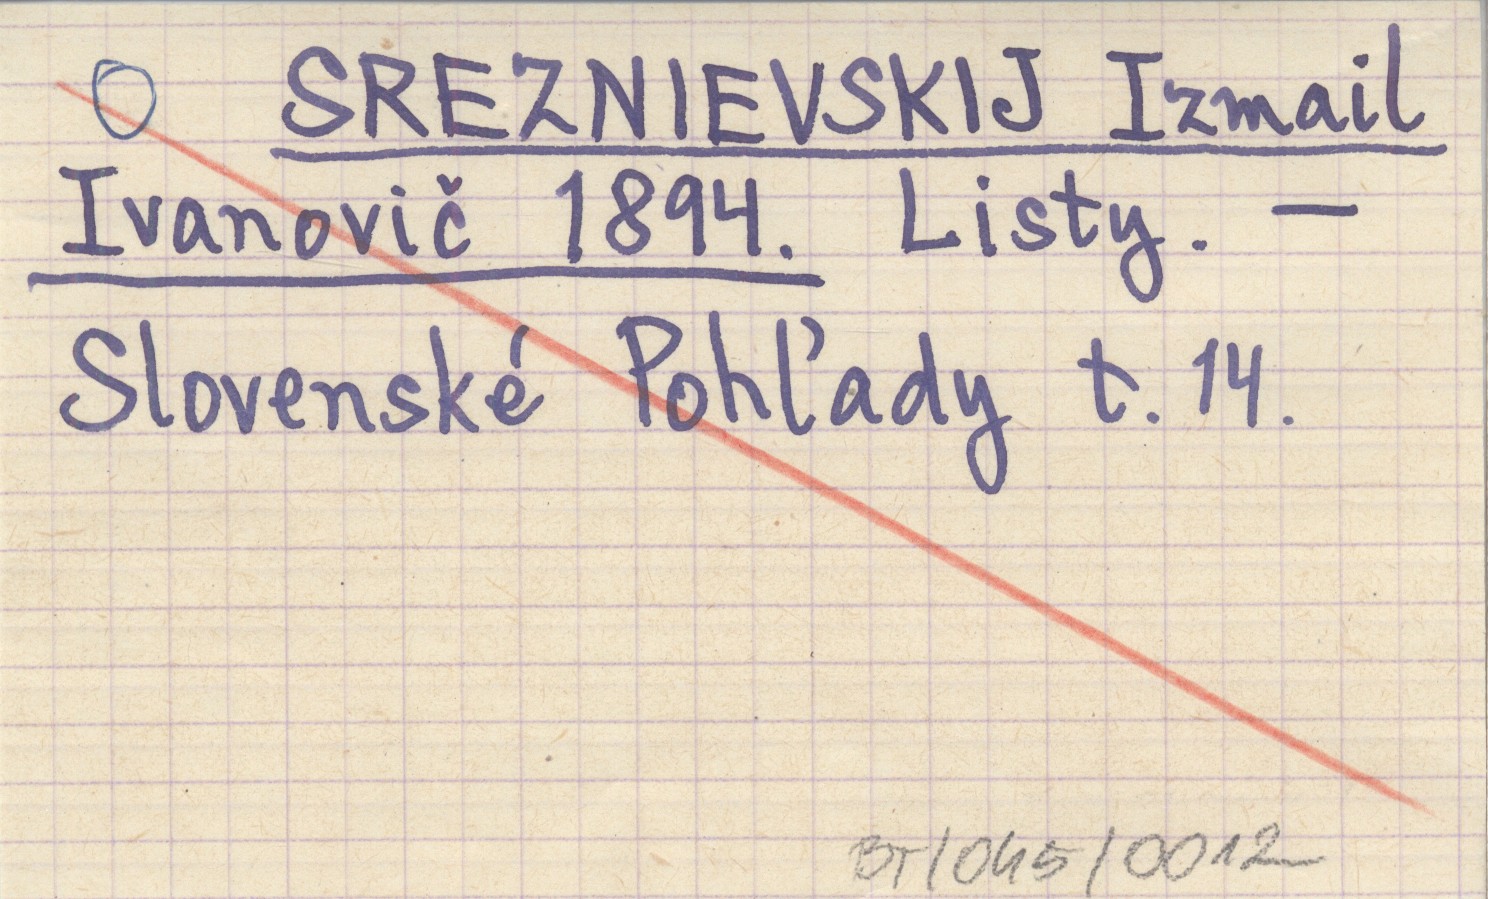 O SREZNIEVSKIJ Izmail
Ivanovič 1894. Listy. —
Slovenské Pohľady t. 14.
BT/045/0012